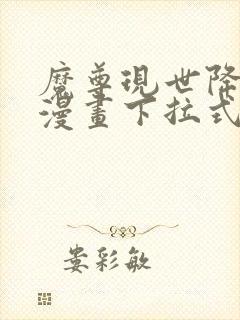 魔尊現世降
漫畫下拉式
婁彩敏